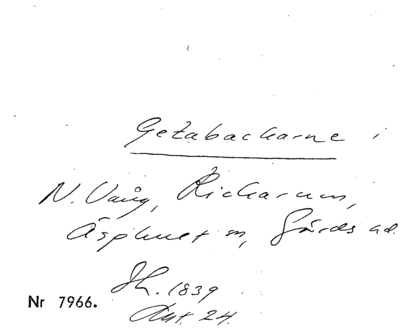 Getabackarne i
N. Vång, Rickarum,
Äsphult m, Gärds hd.
Jh. 1839
Akt 24.
Nr 7966.